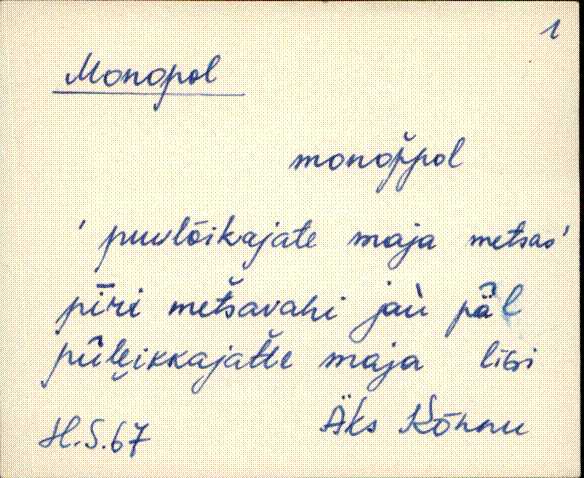 1
Monopol
monop̌pol
'puulõikajate maja metsas'
pīri metšavahi jaù pǟl
pūlẹikkajat̆te maja līsi
H.S.67
Äks Kõnnu